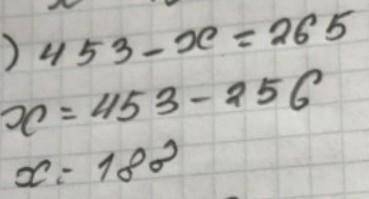 ) 453 - x = 265
x = 453 - 256
x = 188